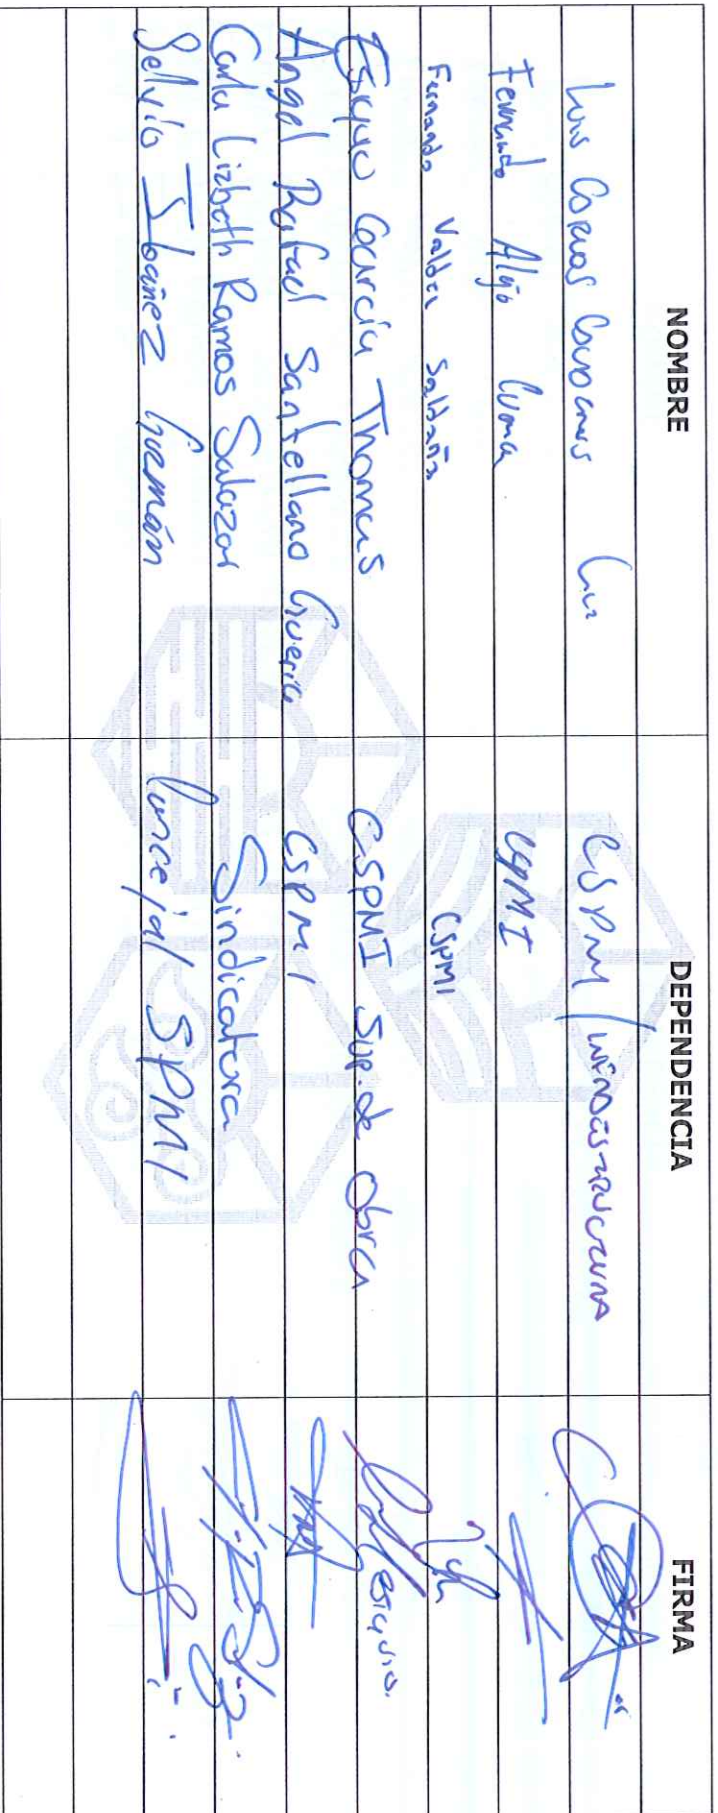 NOMBRE DEPENDENCIA FIRMA
Luis CSPM / INFRAESTRUCTURA
Fernando Alejo Luna CSPMI
Fernando Valdez Saldaña CSPMI
Esiquio García Thomas CSPMI Sup. de Obra esiquio.
Angel Rafael Santellano Guerra CSPMI
Carla Lizbeth Ramos Salazar Sindicatura
Selvio Ibañez Germán Concejal SPMI